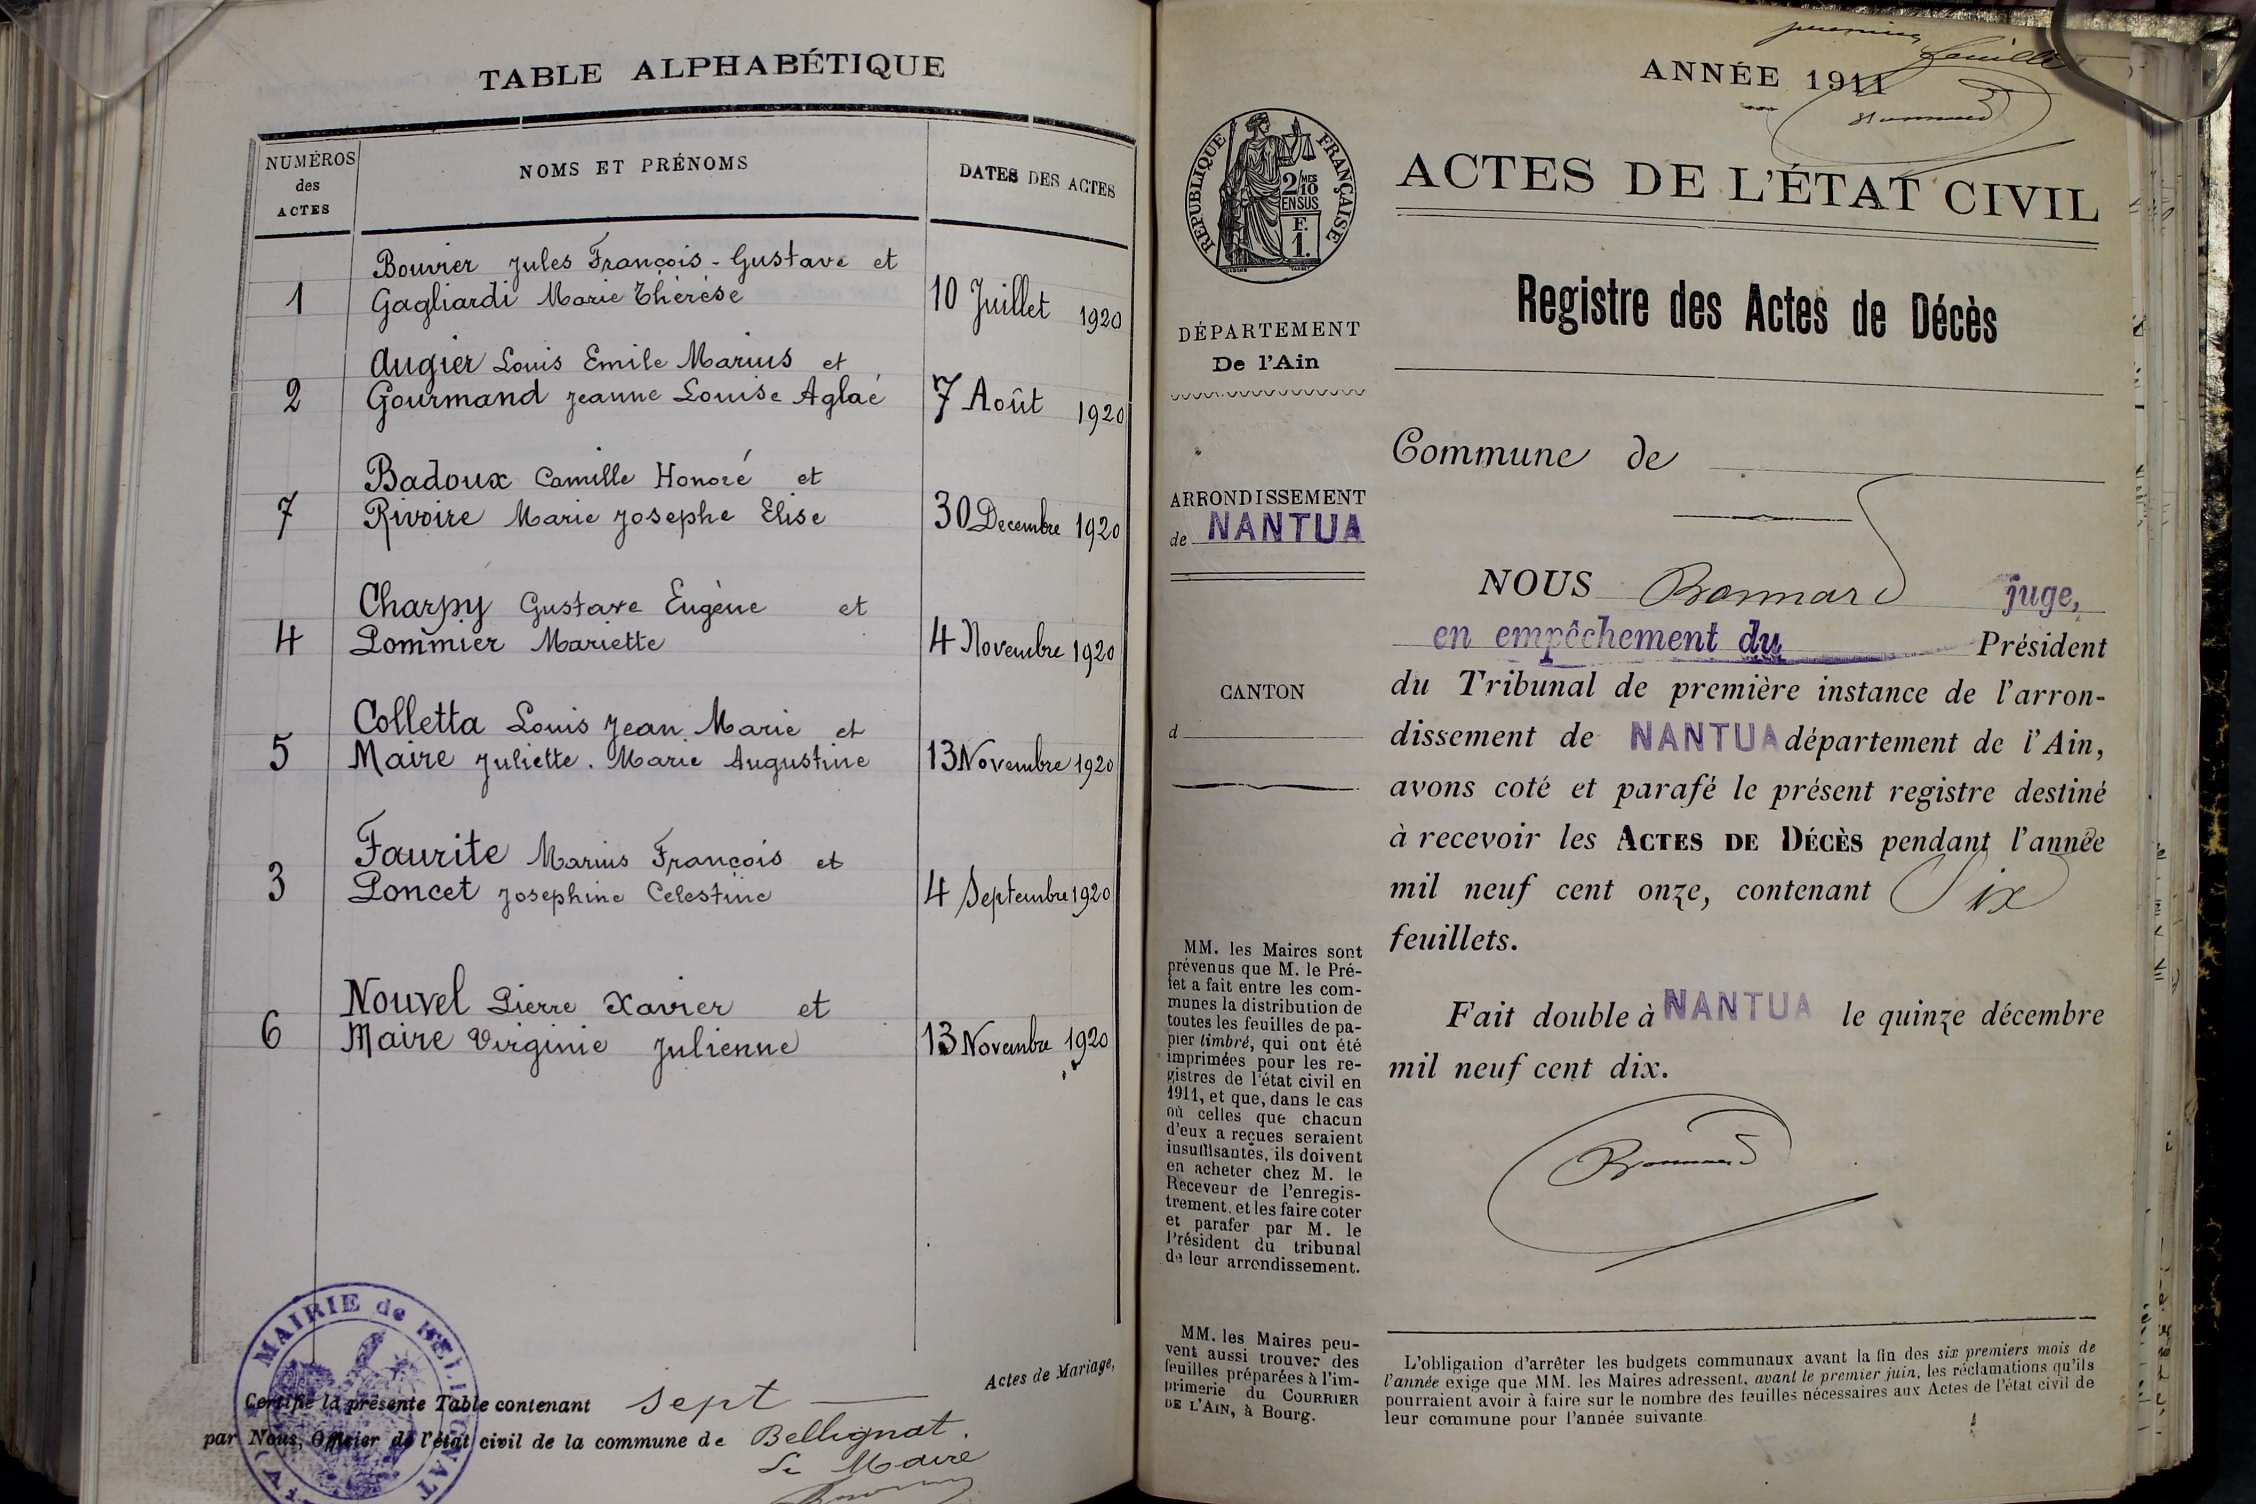 TABLE ALPHABÉTIQUE
NUMÉROS
des
ACTES
NOMS ET PRÉNOMS
DATES DES ACTES
Bouvier Jules François - Gustave et
1 Gagliardi Marie Thérèse 10 Juillet 1920
Augier Louis Emile Marius et
2 Gourmand Jeanne Louise Aglaé 7 Août 1920
Badoux Camille Honoré et
7 Rivoire Marie Josephe Elise 30 Decembre 1920
Charpy Gustave Eugène et
4 Pommier Mariette 4 Novembre 1920
Colletta Louis Jean Marie et
5 Maire Juliette. Marie Augustine 13 Novembre 1920
Faurite Marius François et
3 Poncet Josephine Celestine 4 Septembre 1920
Nouvel Pierre Xavier et
6 Maire Virginie Julienne 13 Novembre 1920
MAIRIE de BELLIGNAT
Actes de Mariage,
Certifié la présente Table contenant sept
par Nous, Officier de l'état civil de la commune de Bellignat.
Le Maire
premier
feuillet
ANNÉE 1911
Bonnard
RÉPUBLIQUE FRANÇAISE
2/10 MES
EN SUS
F.
1.
ACTES DE L'ÉTAT CIVIL
Registre des Actes de Décès
DÉPARTEMENT
De l'Ain
Commune de
ARRONDISSEMENT
de NANTUA
CANTON
d
NOUS Bonnard juge,
en empêchement du Président
du Tribunal de première instance de l'arron-
dissement de NANTUA département de l'Ain,
avons coté et parafé le présent registre destiné
à recevoir les ACTES DE DÉCÈS pendant l'année
mil neuf cent onze, contenant Six
feuillets.
Fait double à NANTUA le quinze décembre
mil neuf cent dix.
Bonnard
MM. les Maires sont
prévenus que M. le Pré-
fet a fait entre les com-
munes la distribution de
toutes les feuilles de pa-
pier timbré, qui ont été
imprimées pour les re-
gistres de l'état civil en
1911, et que, dans le cas
où celles que chacun
d'eux a reçues seraient
insuffisantes, ils doivent
en acheter chez M. le
Receveur de l'enregis-
trement, et les faire coter
et parafer par M. le
Président du tribunal
de leur arrondissement.
MM. les Maires peu-
vent aussi trouver des
feuilles préparées à l'im-
primerie du COURRIER
DE L'AIN, à Bourg.
L'obligation d'arrêter les budgets communaux avant la fin des six premiers mois de
l'année exige que MM. les Maires adressent, avant le premier juin, les réclamations qu'ils
pourraient avoir à faire sur le nombre des feuilles nécessaires aux Actes de l'état civil de
leur commune pour l'année suivante.